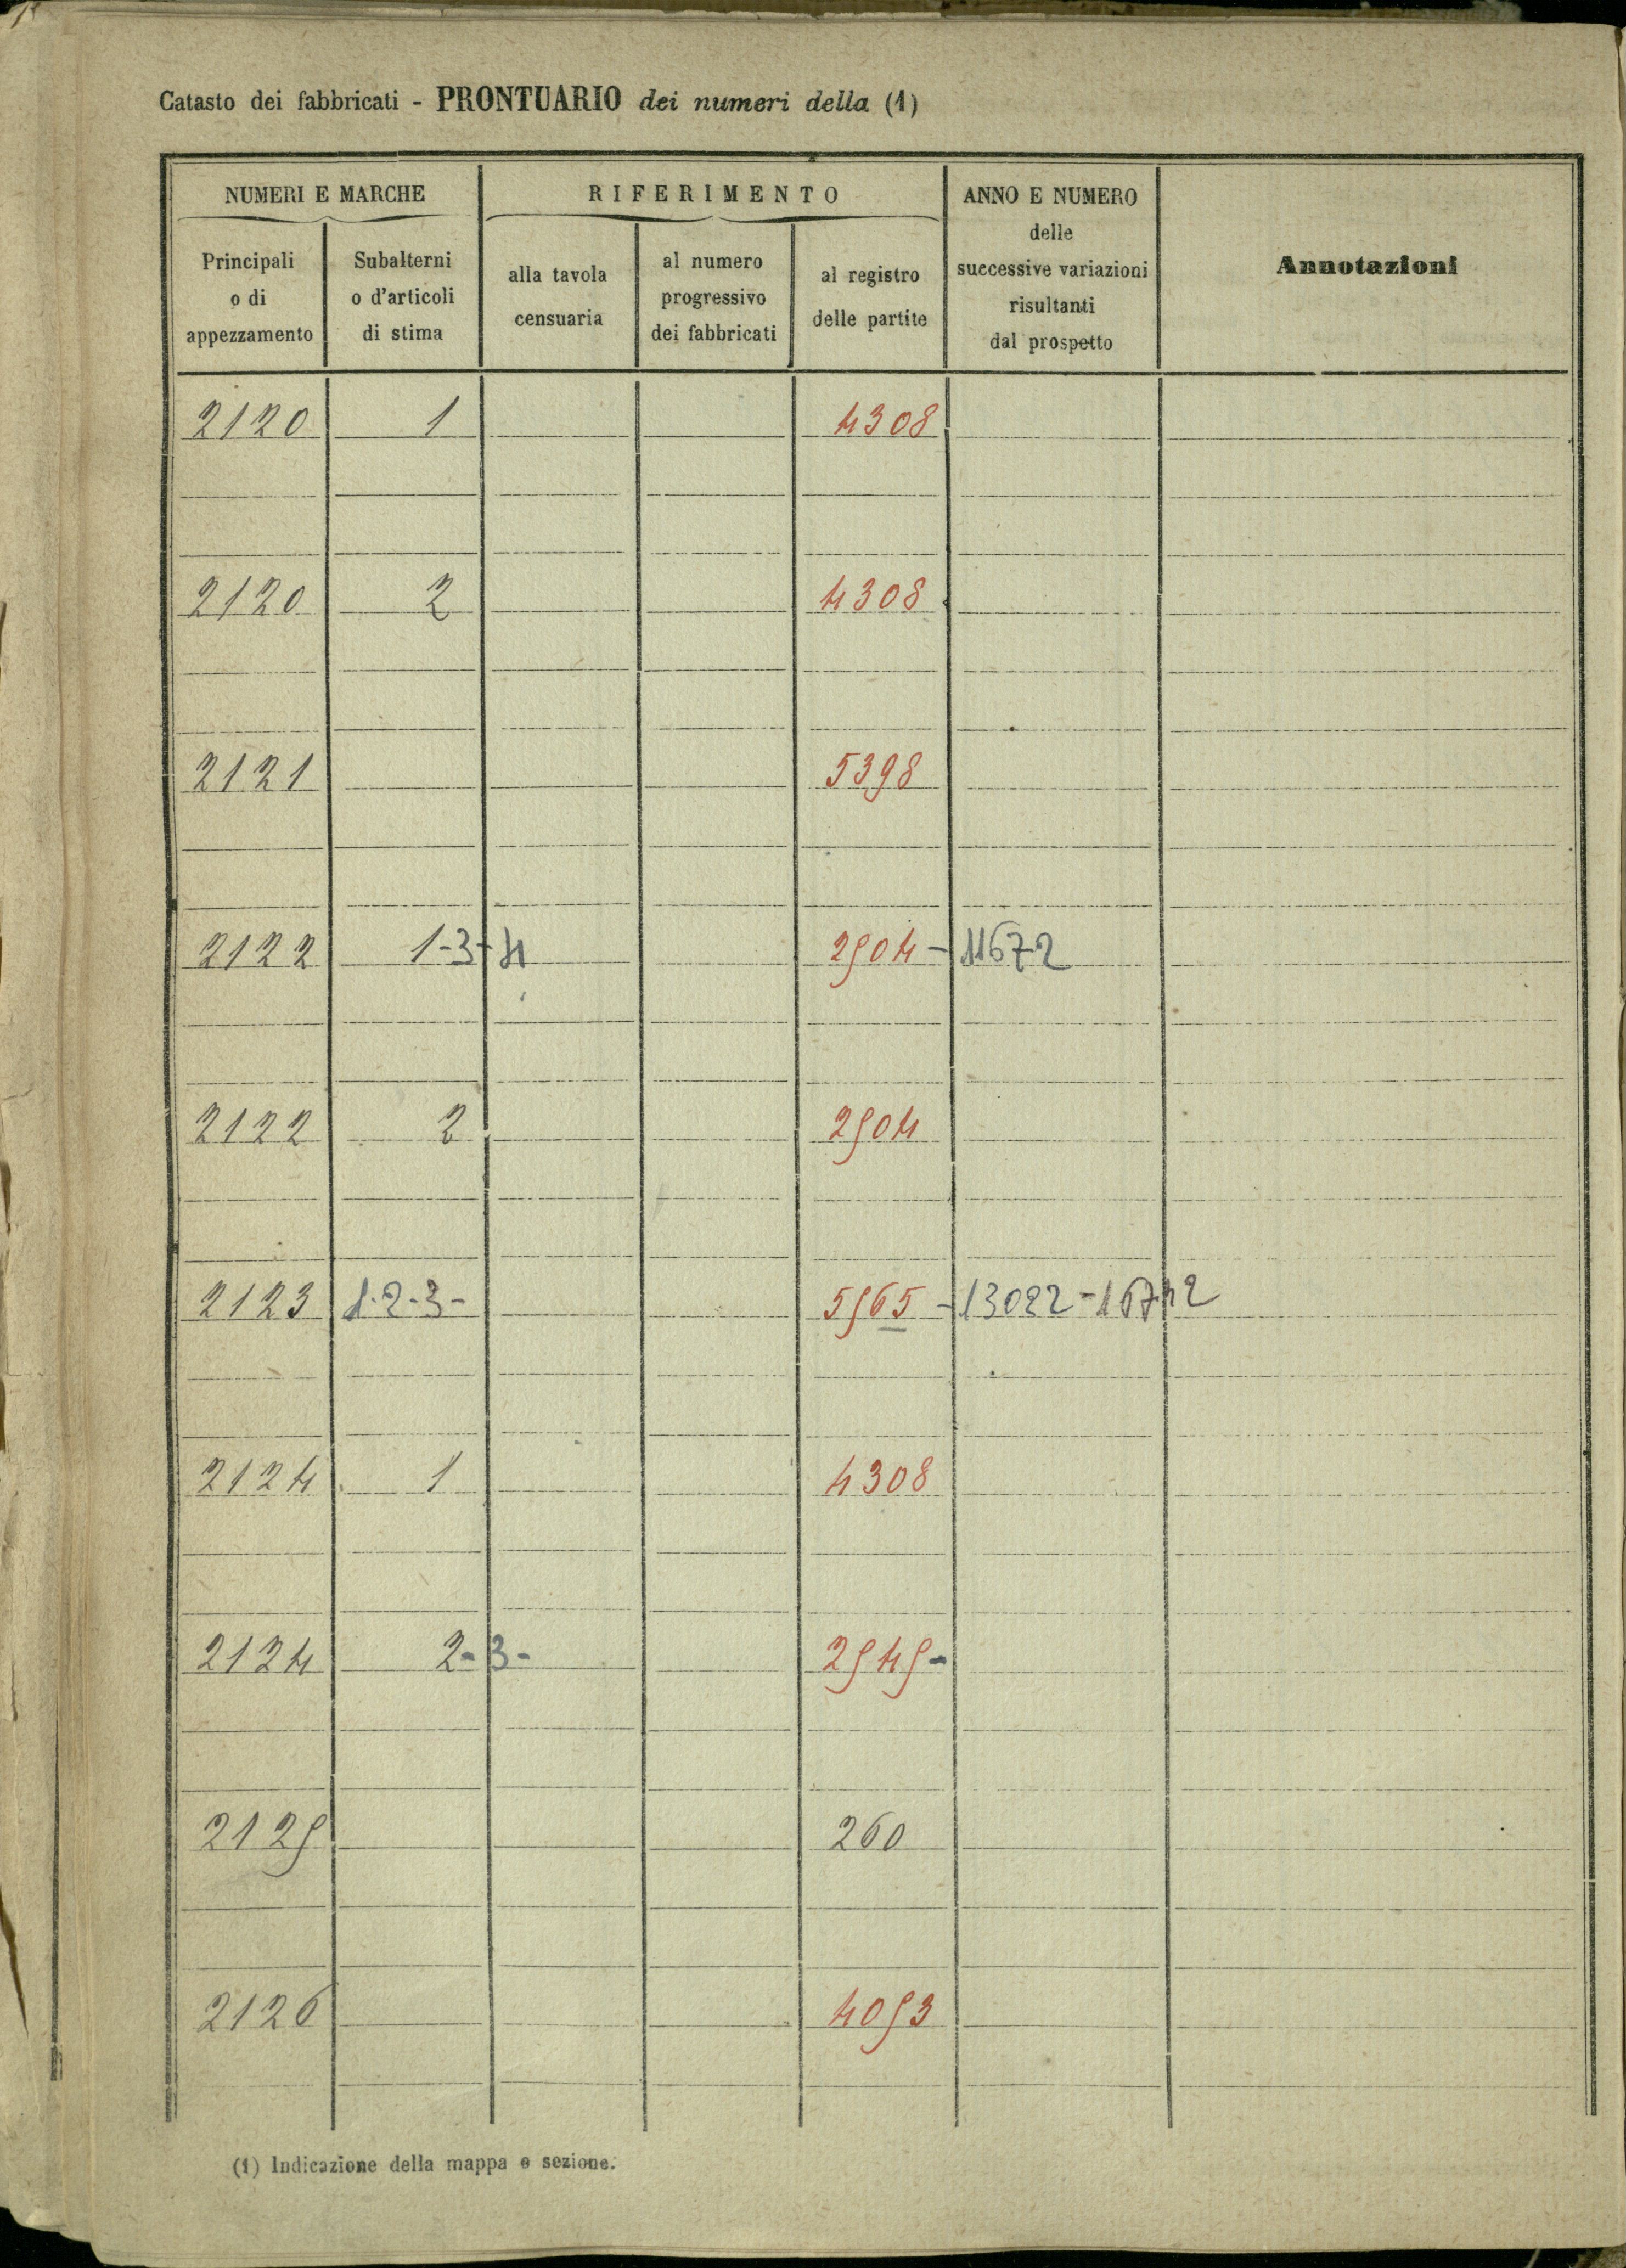 Catasto dei fabbricati - PRONTUARIO dei numeri della (1)
NUMERI E MARCHE
RIFERIMENTO
ANNO E NUMERO
delle
successive variazioni
risultanti
dal prospetto
Annotazioni
Principali
o di
appezzamento
Subalterni
o d'articoli
di stima
alla tavola
censuaria
al numero
progressivo
dei fabbricati
al registro
delle partite
2120 1 4308
2120 2 4308
2121 5398
2122 1-3-4 2504-11672
2122 2 2504
2123 1-2-3- 5565-13022-16742
2124 1 4308
2124 2-3- 2545-
2125 260
2126 4053
(1) Indicazione della mappa o sezione.